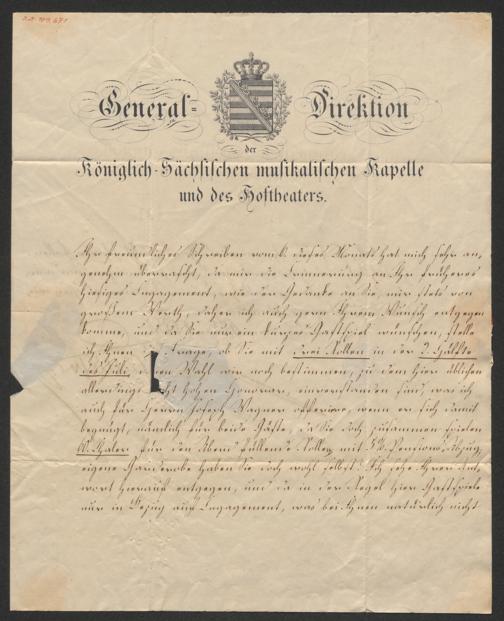 General-Direktion
der
Königlich-Sächsischen musikalischen Kapelle
und des Hoftheaters.
Ihr freundliches Schreiben vom 6. dieses Monats hat mich sehr an-
genehm überrascht, da mir die Erinnerung an Ihr früheres
hiesiges Engagement, wie der Gedanke an Sie, mir stets von
großem Werth, daher ich auch gern Ihrem Wunsch entgegen
komme, und da Sie nur ein kurzes Gastspiel wünschen, stelle
ich Ihnen die Frage, ob Sie mit drei Rollen in der 2. Hälfte
des Juli, deren Wahl wir noch bestimmen, zu dem hier üblichen
allerdings nicht hohen Honorar, einverstanden sind, was ich
auch für Herrn Joseph Wagner offerire, wenn er sich damit
begnügt, nämlich für beide Gäste, da Sie doch zusammen spielen
60 Thaler für den Abend füllende Rollen mit 5% Pensions-Abzug,
eigene Garderobe haben Sie doch wohl selbst? Ich sehe Ihrer Ant-
wort hierauf entgegen, und da in der Regel hier Gastspiele
nur in Bezug auf Engagement, was bei Ihnen natürlich nicht